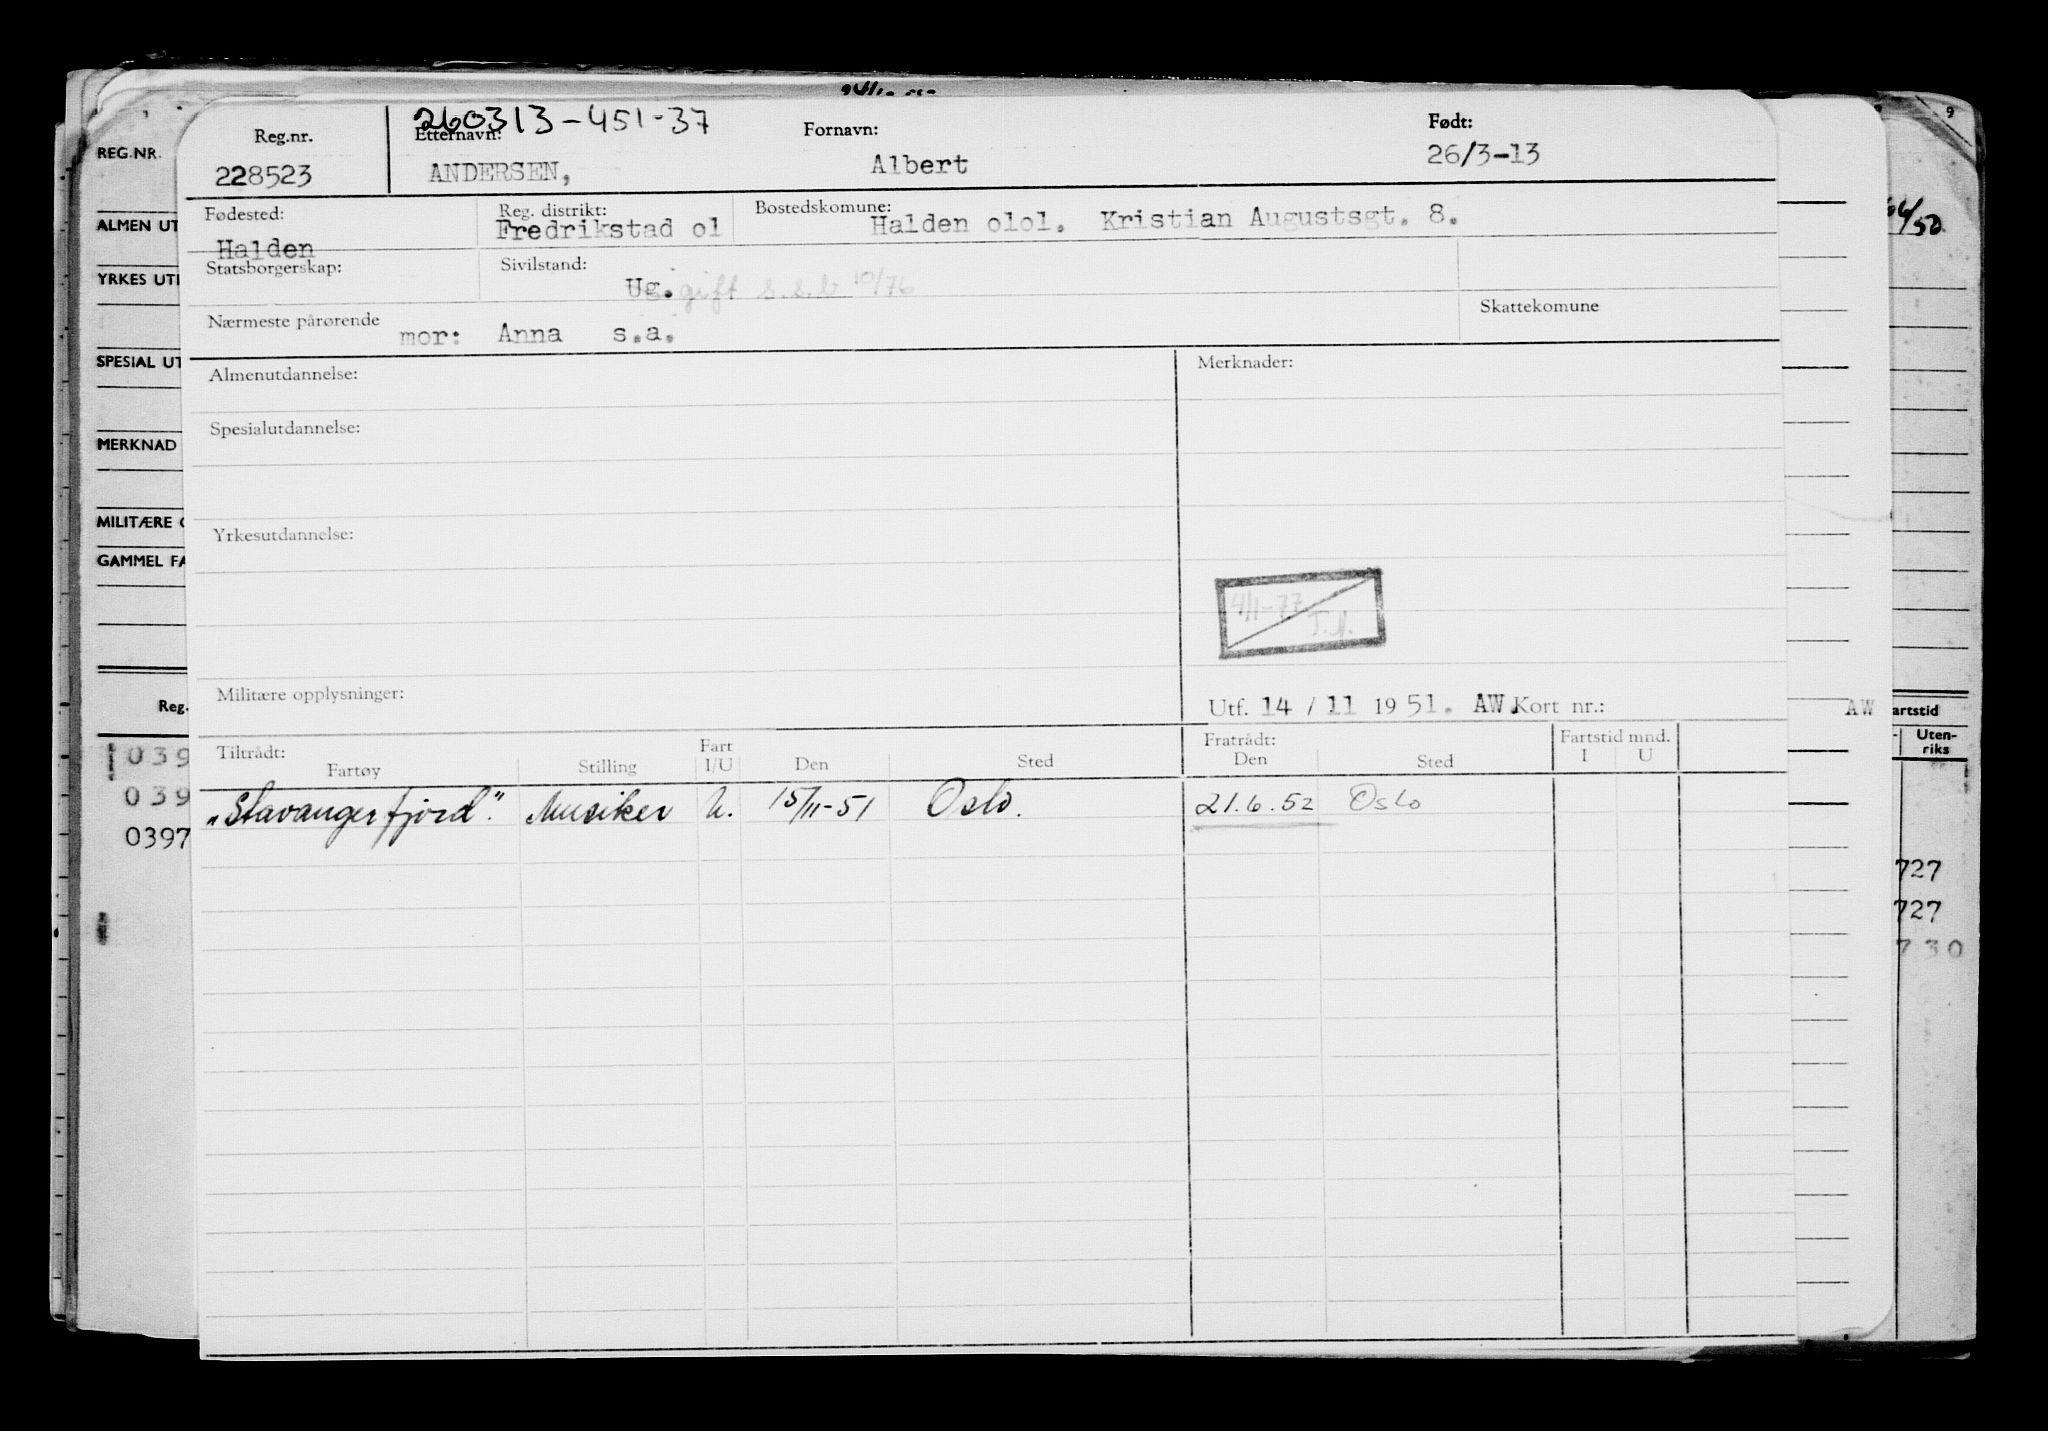 260313-451-37
Reg.nr. Etternavn: Fornavn: Født:
228523 ANDERSEN, Albert 26/3-13
Fødested: Reg. distrikt: Bostedskomune:
Halden Fredrikstad ol Halden olol. Kristian Augustsgt. 8.
Statsborgerskap: Sivilstand:
Ug. gift s.s.b 10/76
Nærmeste pårørende Skattekomune
mor: Anna s.a.
Almenutdannelse: Merknader:
Spesialutdannelse:
Yrkesutdannelse:
4/1-77
J.A.
Militære opplysninger:
Utf. 14 / 11 1951. AW. Kort nr.:
Tiltrådt: Fratrådt: Fartstid mnd.
Fartøy Stilling Fart I/U Den Sted Den Sted I U
"Stavangerfjord". Musiker U. 15/11-51 Oslo. 21.6.52 Oslo
REG.NR.
ALMEN UT
YRKES UT
SPESIAL UT
MERKNAD
MILITÆRE
GAMMEL FA
Reg.
039
039
0397
9
4/50
AW
artstid
Uten-
riks
727
727
730